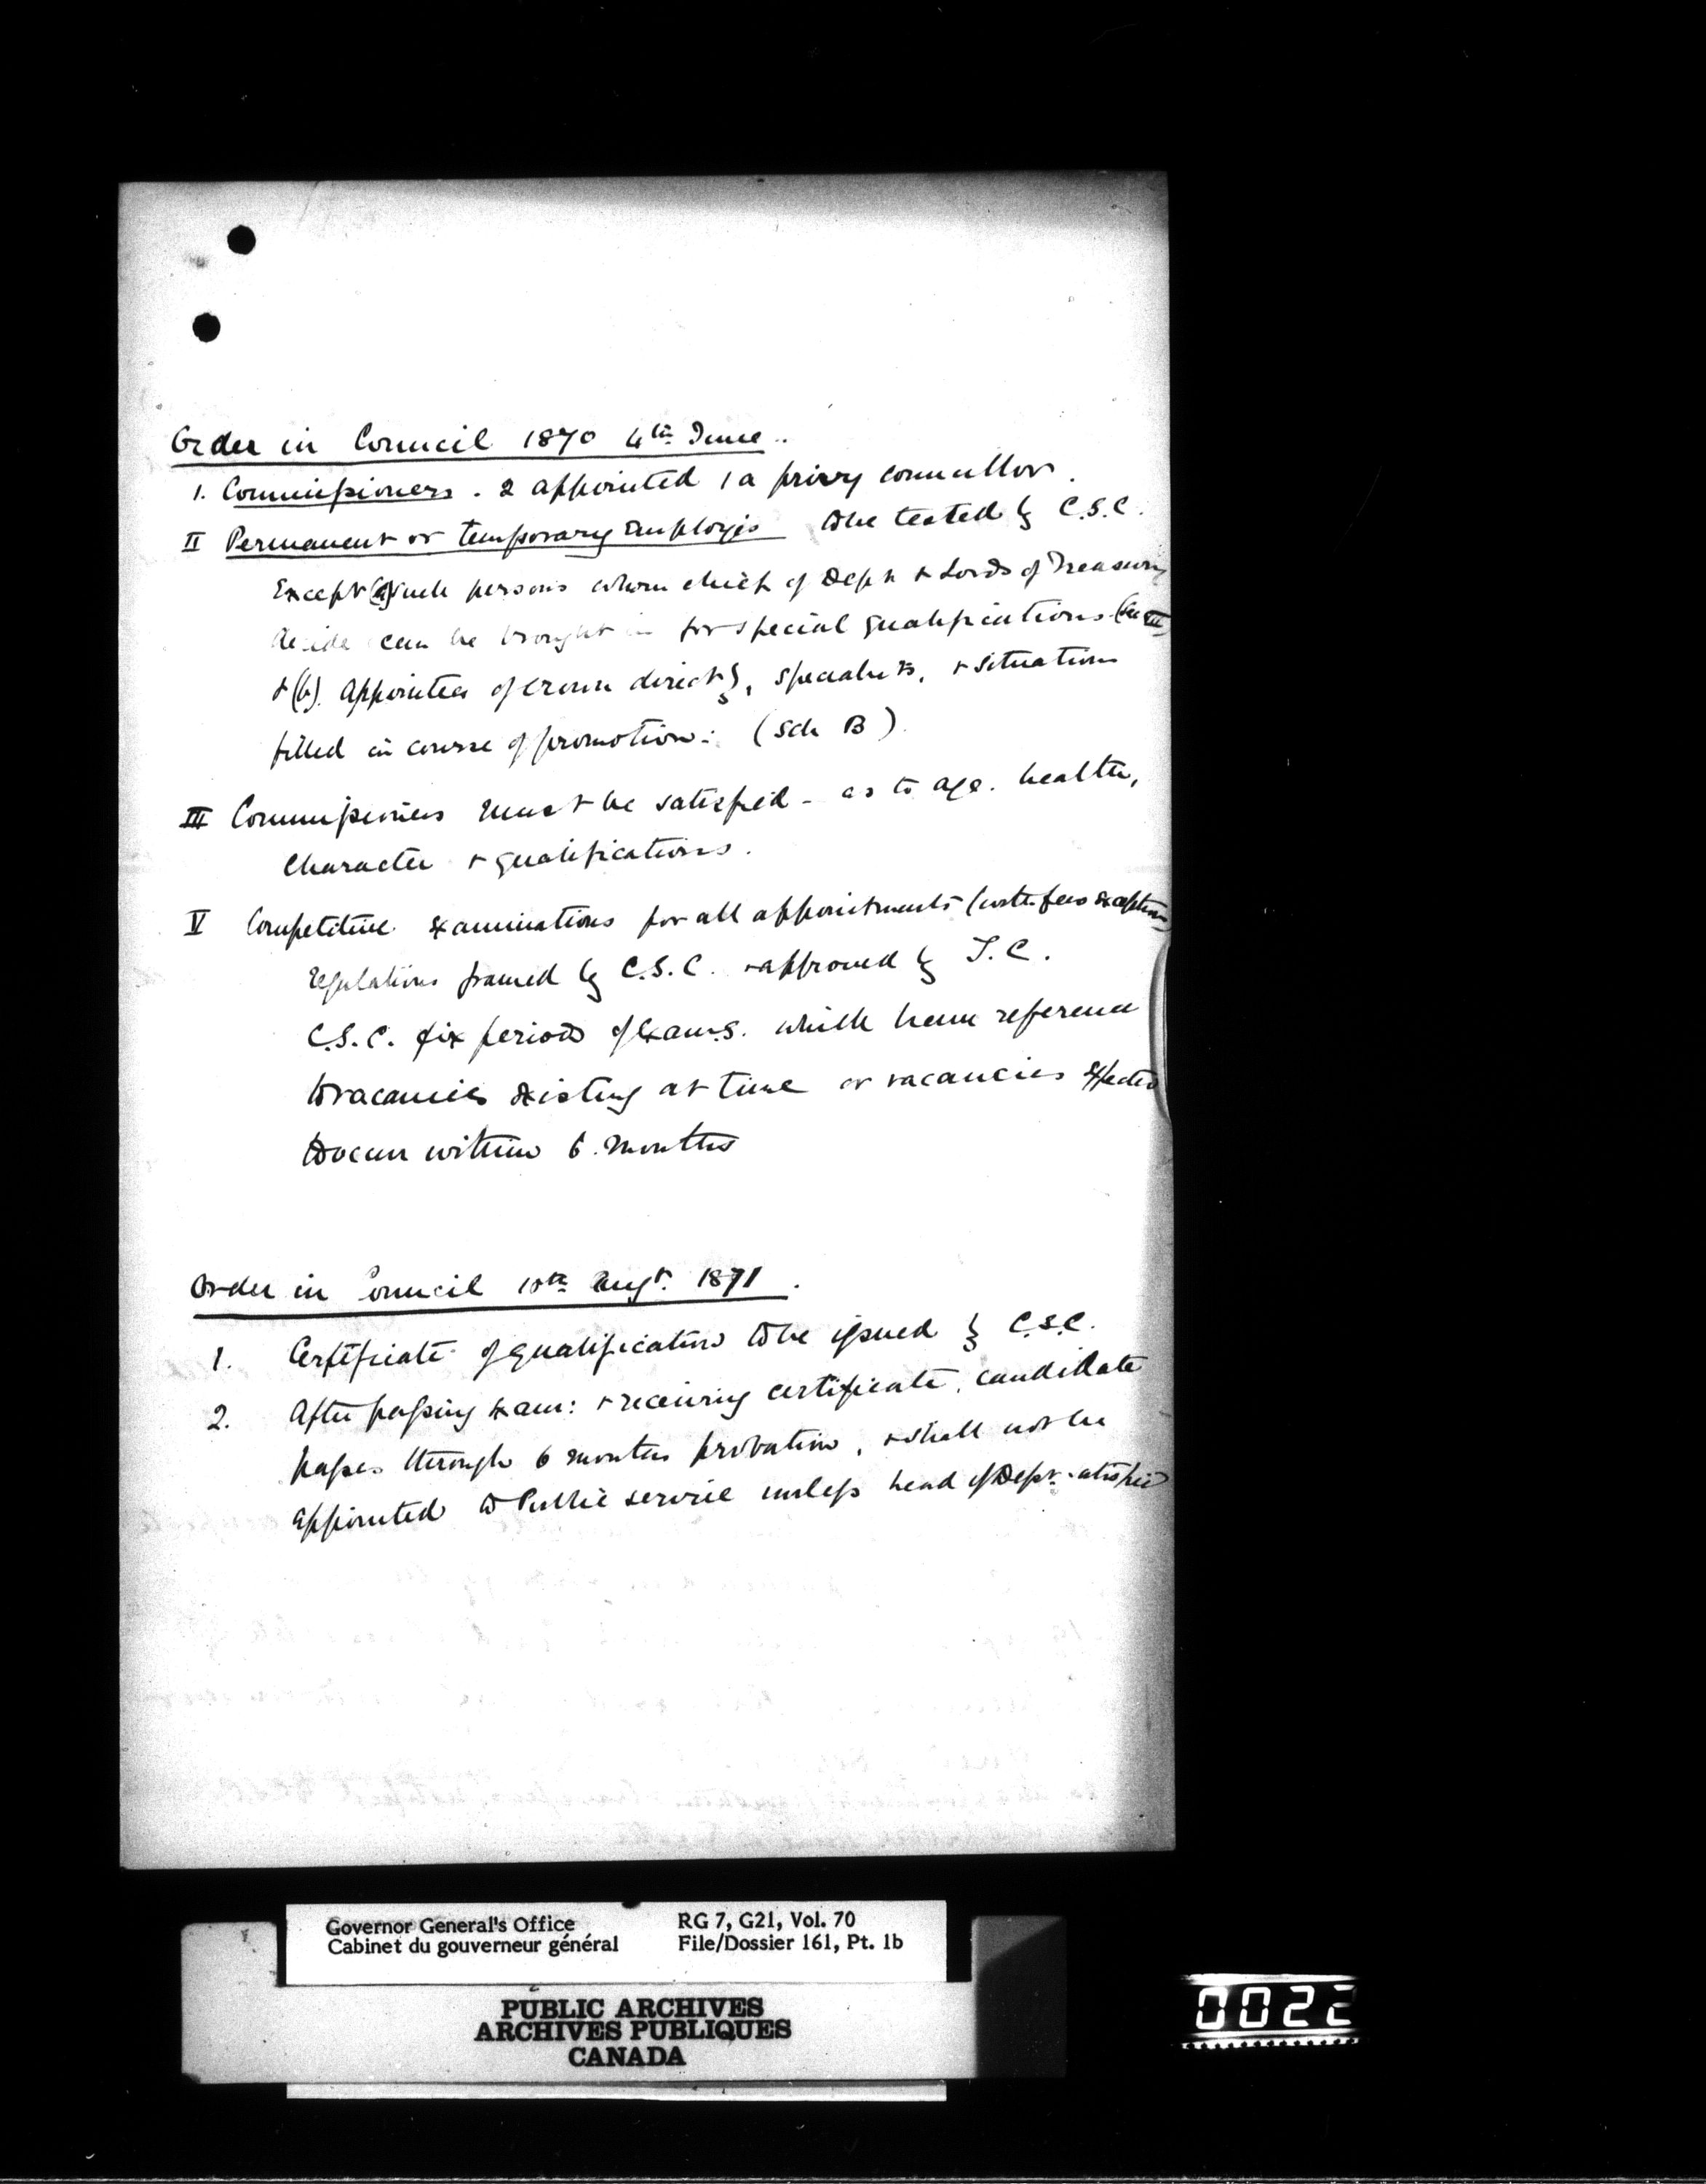 Order in Council 1870 4th June.
1. Commissioners. 2 appointed 1 a privy councillor.
II Permanent or temporary Employés to be tested by C.S.C.
Except (a) such persons whom chief of Dept & Lords of Treasury
decide can be brought in for special qualifications (see III)
& (b). Appointees of Crown directly, specialists, & situations
filled in course of promotion: (Sch B)
III Commissioners must be satisfied - as to age. health,
Character & qualifications.
V Competitive examinations for all appointments (with few exceptions)
regulations framed by C.S.C. & approved by T.C.
C.S.C. fix periods of Exams. which have reference
to vacancies existing at time or vacancies expected
to occur within 6 months
Order in Council Augt. 1871.
1. Certificate of qualification to be issued by C.S.C.
2. After passing exam: & receiving certificate, candidate
passes through 6 months probation, & shall not be
appointed to Public service unless head of Dept. satisfied
Governor General's Office
Cabinet du gouverneur général
RG 7, G21, Vol. 70
File/Dossier 161, Pt. 1b
PUBLIC ARCHIVES
ARCHIVES PUBLIQUES
CANADA
0022